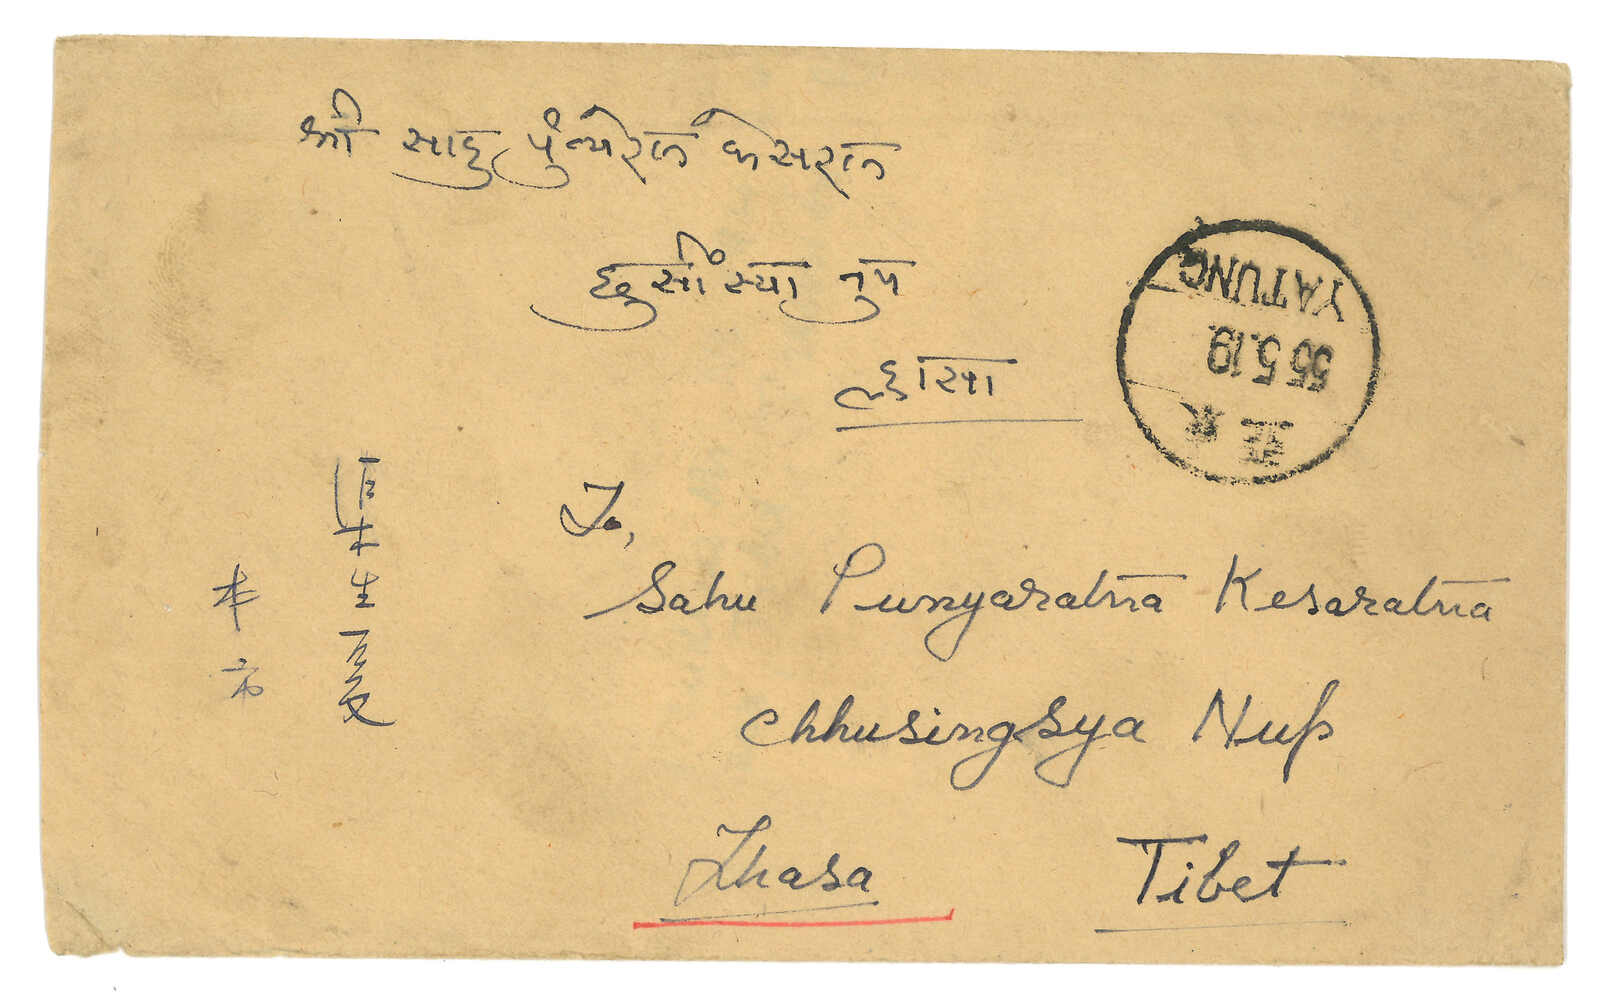 श्री साहु पुंन्येरत्न केसरत्न
छुसींस्या नुप
ल्हासा
YATUNG
55.5.19
亚東
To,
Sahu Punyaratna Kesaratna
Chhusingsya Nup
Lhasa Tibet
本市